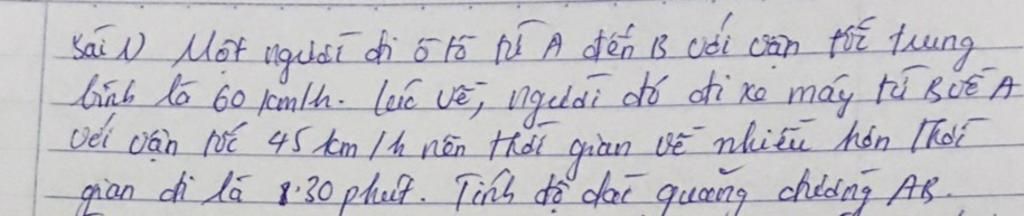 Bài 1) Một người đi ô tô từ A đến B với vận tốc trung
bình là 60 km/h. Lúc về, người đó đi xe máy từ B về A
với vận tốc 45 km/h nên thời gian về nhiều hơn thời
gian đi là 30 phút. Tính độ dài quãng đường AB.